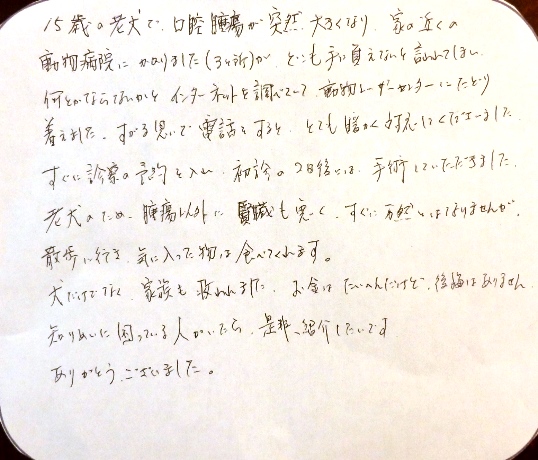 15歳の老犬で、口腔腫瘍が突然大きくなり、家の近くの
動物病院にかかりました(3ヶ所)が、どこも手に負えないと言われてしまい
何とかならないかとインターネットを調べていて、動物レーザーセンターにたどり
着きました。すがる思いで電話をすると、とても暖かく対応してくださいました。
すぐに診察の予約を入れ、初診の2日後には、手術していただきました。
老犬のため、腫瘍以外に腎臓も悪く、すぐに万然とはなりませんが、
散歩に行き、気に入った物は食べてくれます。
犬だけでなく、家族も救われました。お金はたいへんだけど、後悔はありません。
知りあいに困っている人がいたら、是非、紹介したいです
ありがとうございました。